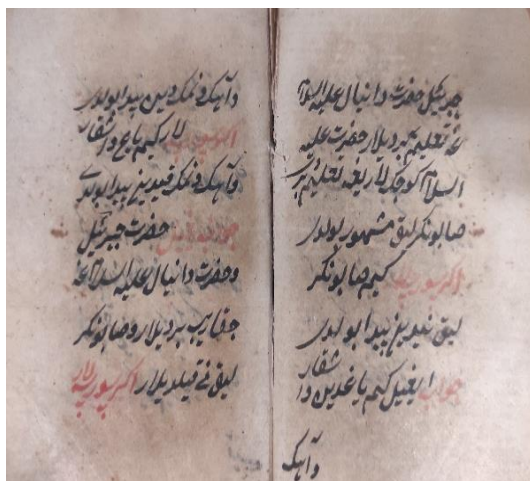 جبرئیل حضرت دانیال علیه السلام
غه تعلیم بردیلار حضرت علیه
السلام کوچکلاریغه تعلیم بردی
صابونکرلیق مشهور بولدی
اکر سورسه لار کیم صابونکر
لیق نیدین پیدا بولدی
جواب ایغیل کیم یاغدین و اشقار
وآهک
وآهک و نمکدین پیدا بولدی
اکر سورسه لار کیم یاغ و اشقار
وآهک و نمک قیدین پیدا بولدی
حضرت جبرئیل
و حضرت دانیال علیه السلام غه
چقاریب بردیلار و صابونکر
لیق نی قیلدیلار اکر سورسه لار